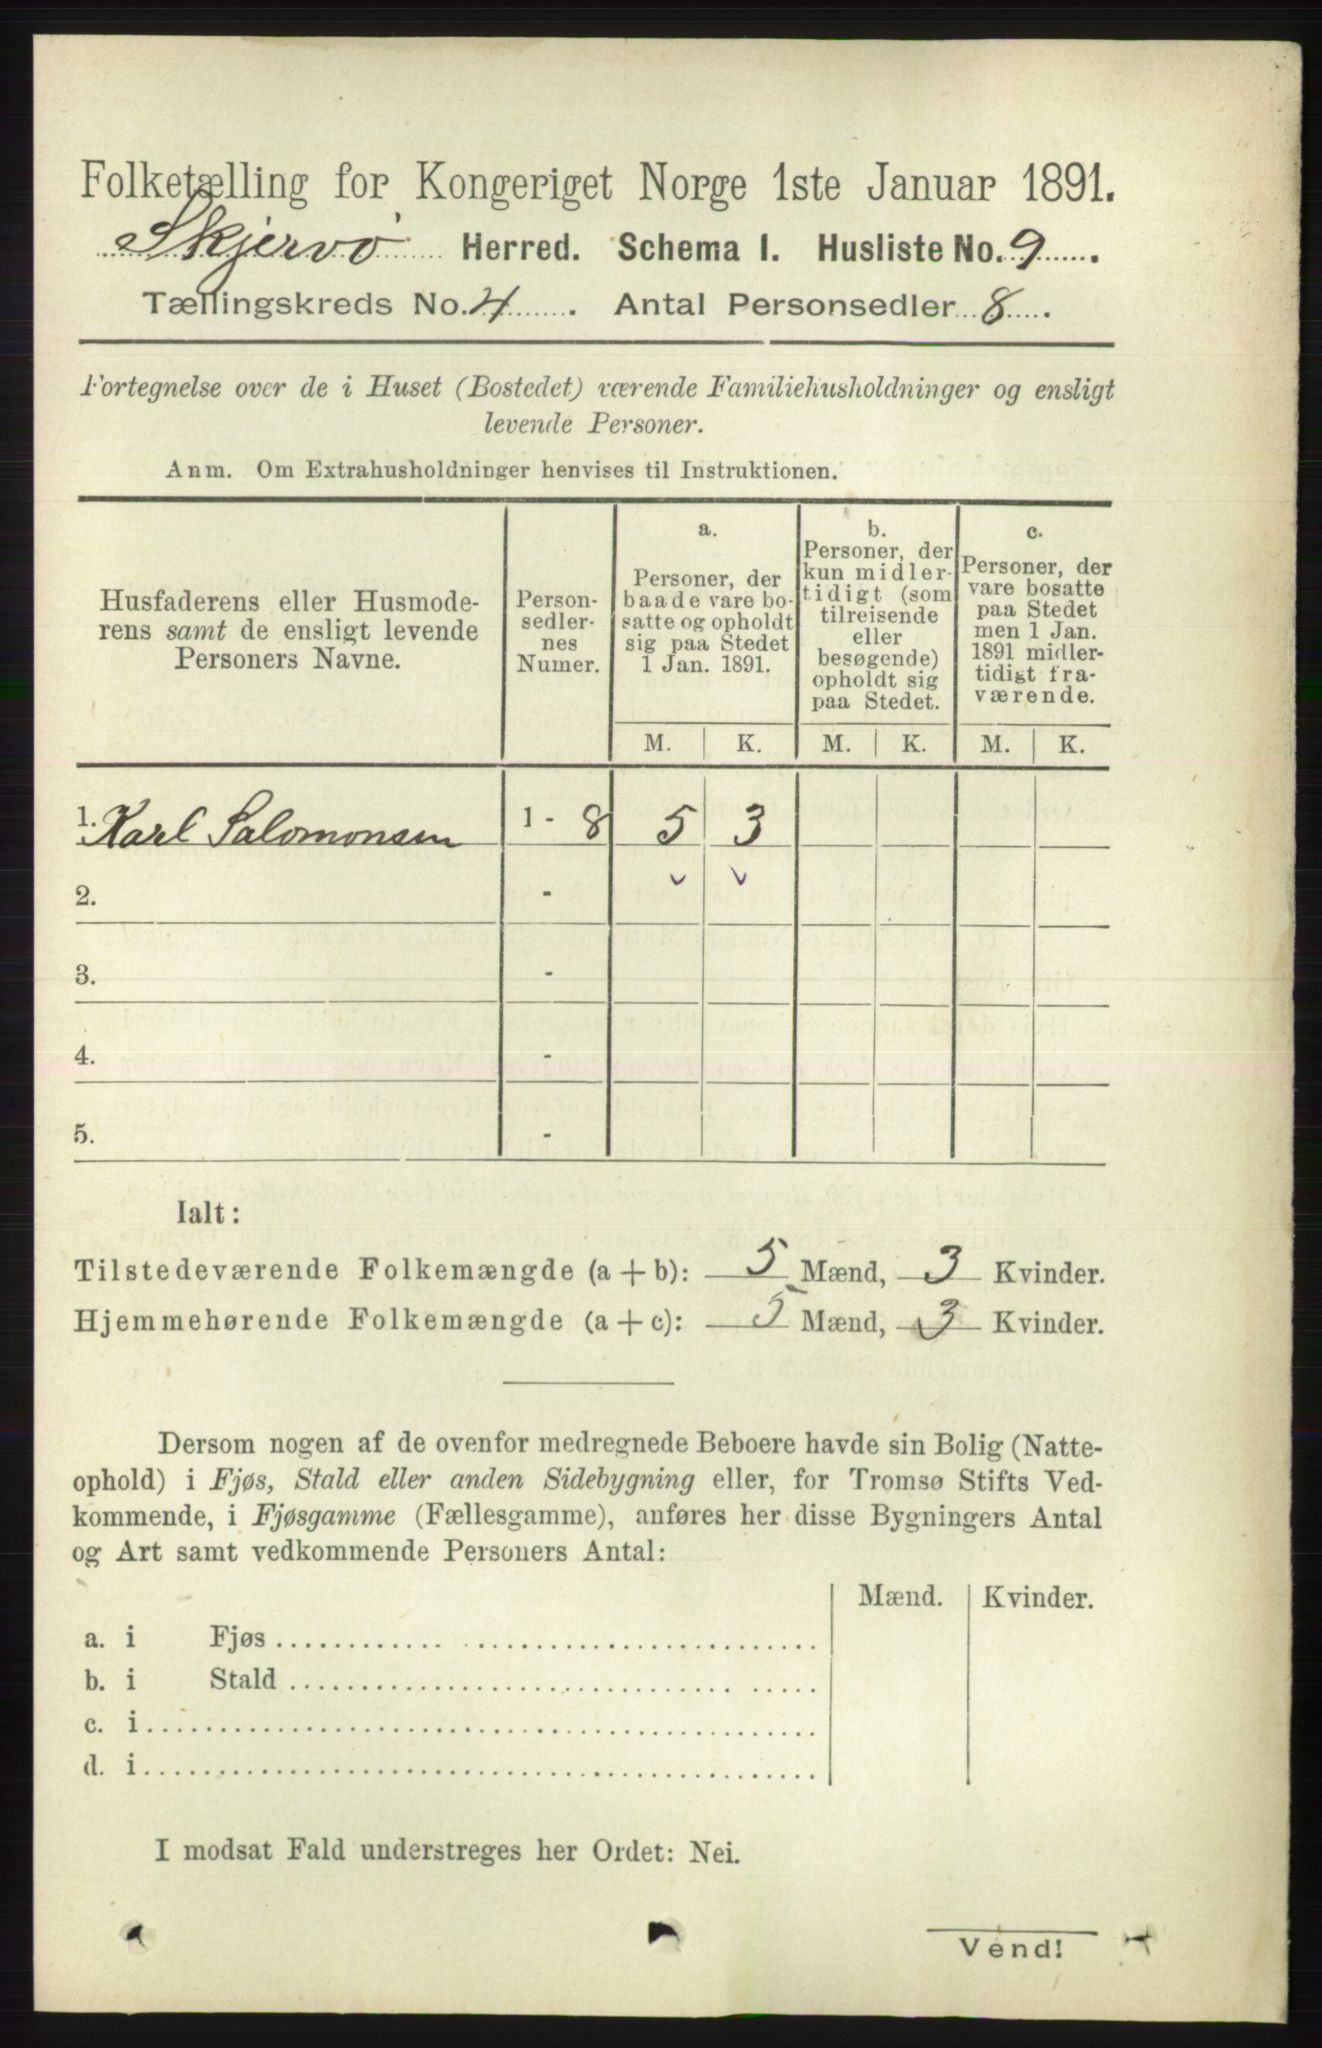 Folketælling for Kongeriget Norge 1ste Januar 1891.
Skjervø Herred. Schema I. Husliste No. 9.
Tællingskreds No. 4. Antal Personsedler 8.
Fortegnelse over de i Huset (Bostedet) værende Familiehusholdninger og ensligt
levende Personer.
Anm. Om Extrahusholdninger henvises til Instruktionen.
Husfaderens eller Husmode-
rens samt de ensligt levende
Personers Navne.
Person-
sedler-
nes
Numer.
a.
Personer, der
baade vare bo-
satte og opholdt
sig paa Stedet
1 Jan. 1891.
b.
Personer, der
kun midler-
tidigt (som
tilreisende
eller
besøgende)
opholdt sig
paa Stedet.
c.
Personer, der
vare bosatte
paa Stedet
men 1 Jan.
1891 midler-
tidigt fra-
værende.
M. K. M. K. M. K.
1. Karl Salomonsen 1 - 8 5 3
2. -
3. -
4. -
5. -
Ialt:
Tilstedeværende Folkemængde (a + b): 5 Mænd, 3 Kvinder.
Hjemmehørende Folkemængde (a + c): 5 Mænd, 3 Kvinder.
Dersom nogen af de ovenfor medregnede Beboere havde sin Bolig (Natte-
ophold) i Fjøs, Stald eller anden Sidebygning eller, for Tromsø Stifts Ved-
kommende, i Fjøsgamme (Fællesgamme), anføres her disse Bygningers Antal
og Art samt vedkommende Personers Antal:
Mænd. Kvinder.
a. i Fjøs
b. i Stald
c. i
d. i
I modsat Fald understreges her Ordet: Nei.
Vend!